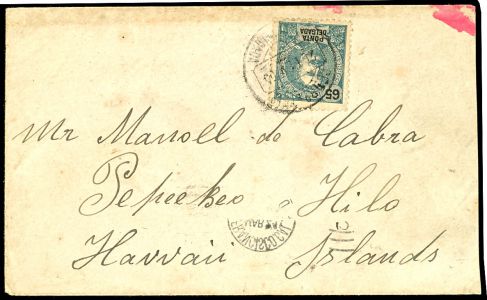 PONTA
DELGADA
65
Mr Manoel de Cabra
Pepeekeo Hilo
Havvaii Islands